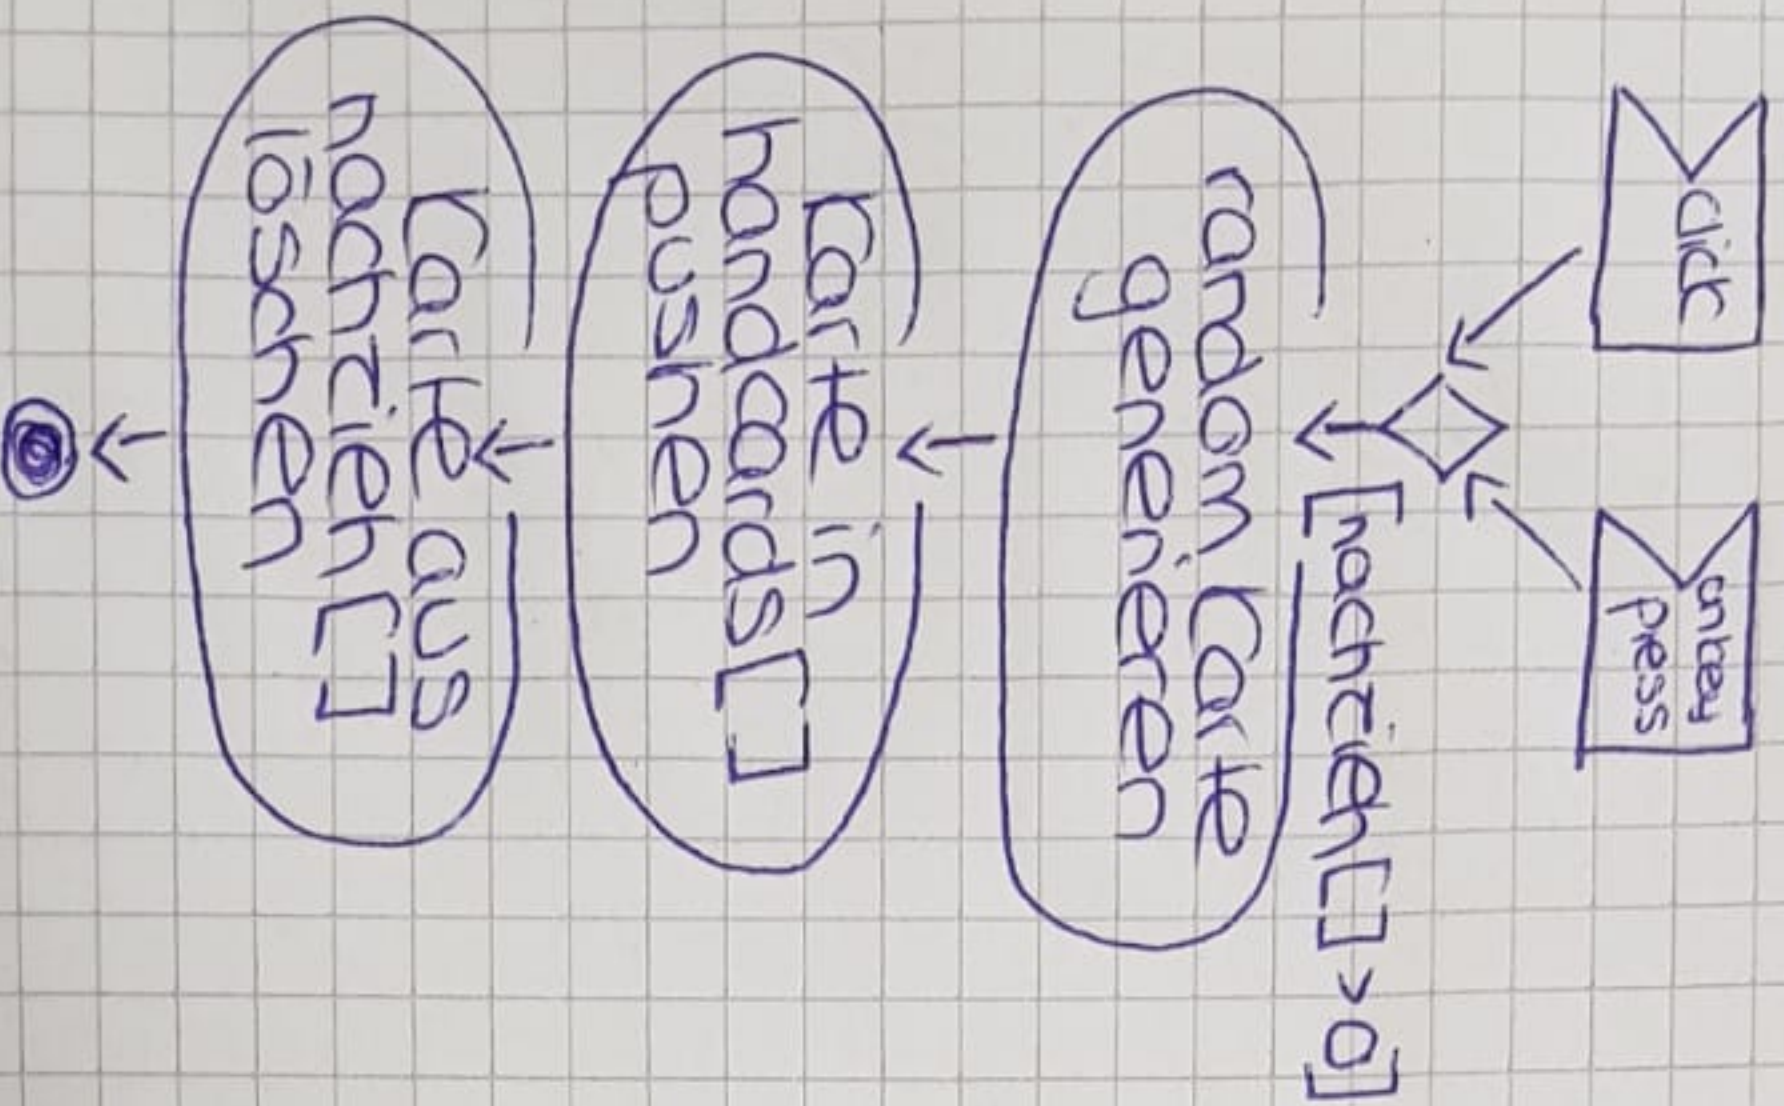 click
onkey
press
[nachzieh[]>0]
random Karte
generieren
Karte in
handcards[]
pushen
Karte aus
nachzieh[]
löschen